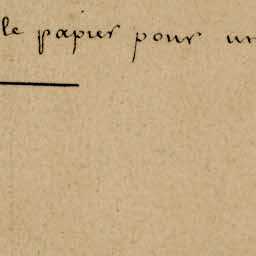 le papier pour un